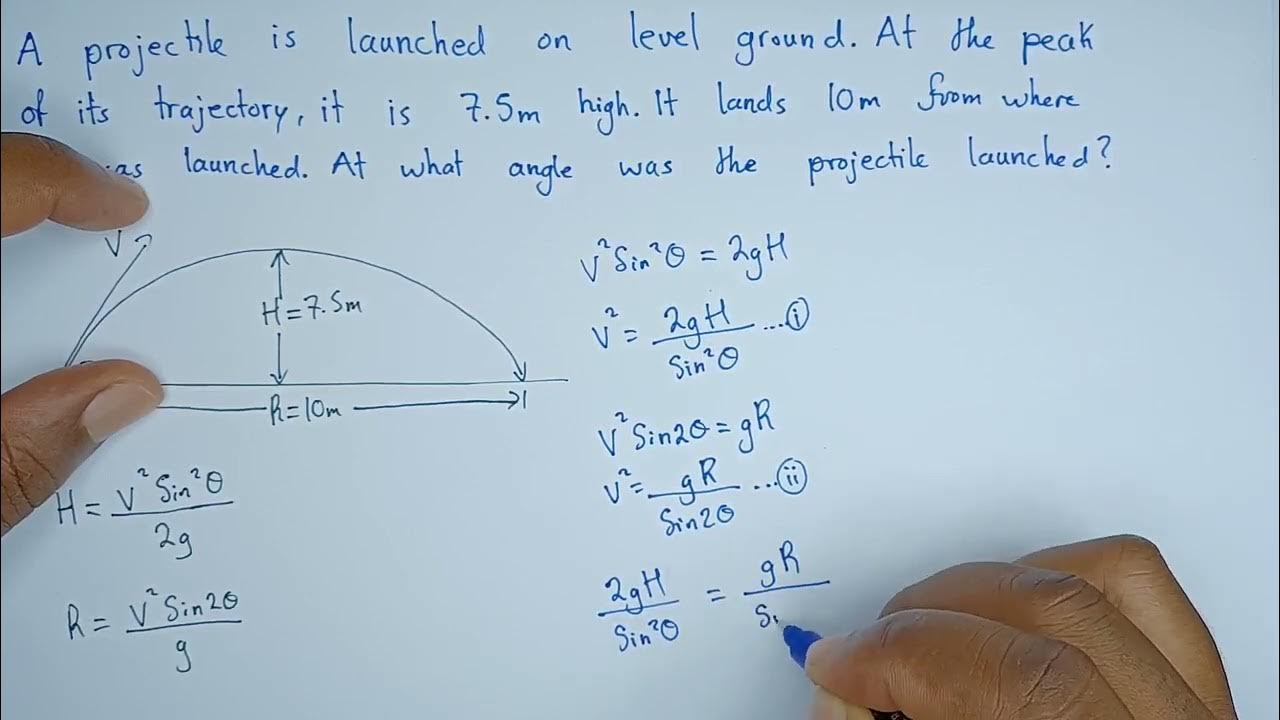 A projectile is launched on level ground. At the peak
of its trajectory, it is 7.5m high. It lands 10m from where
launched. At what angle was the projectile launched?
V
H = 7.5m
R = 10m
H = V² Sin²θ / 2g
R = V² Sin2θ / g
V² Sin²θ = 2gH
V² = 2gH / Sin²θ ...(i)
V² Sin2θ = gR
V² = gR / Sin2θ ...(ii)
2gH / Sin²θ = gR /